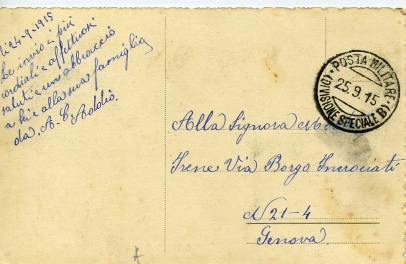 li 24-9-1915
Le invio i più
cordiali e affettuosi
saluti e un abbraccio
a lei e alla sua famiglia
da A. C Addio.
POSTA MILITARE
(DIVISIONE SPECIALE B)
25.9.15
Alla Signora
Irene Via Borgo Incrociati
N 21-4
Genova.